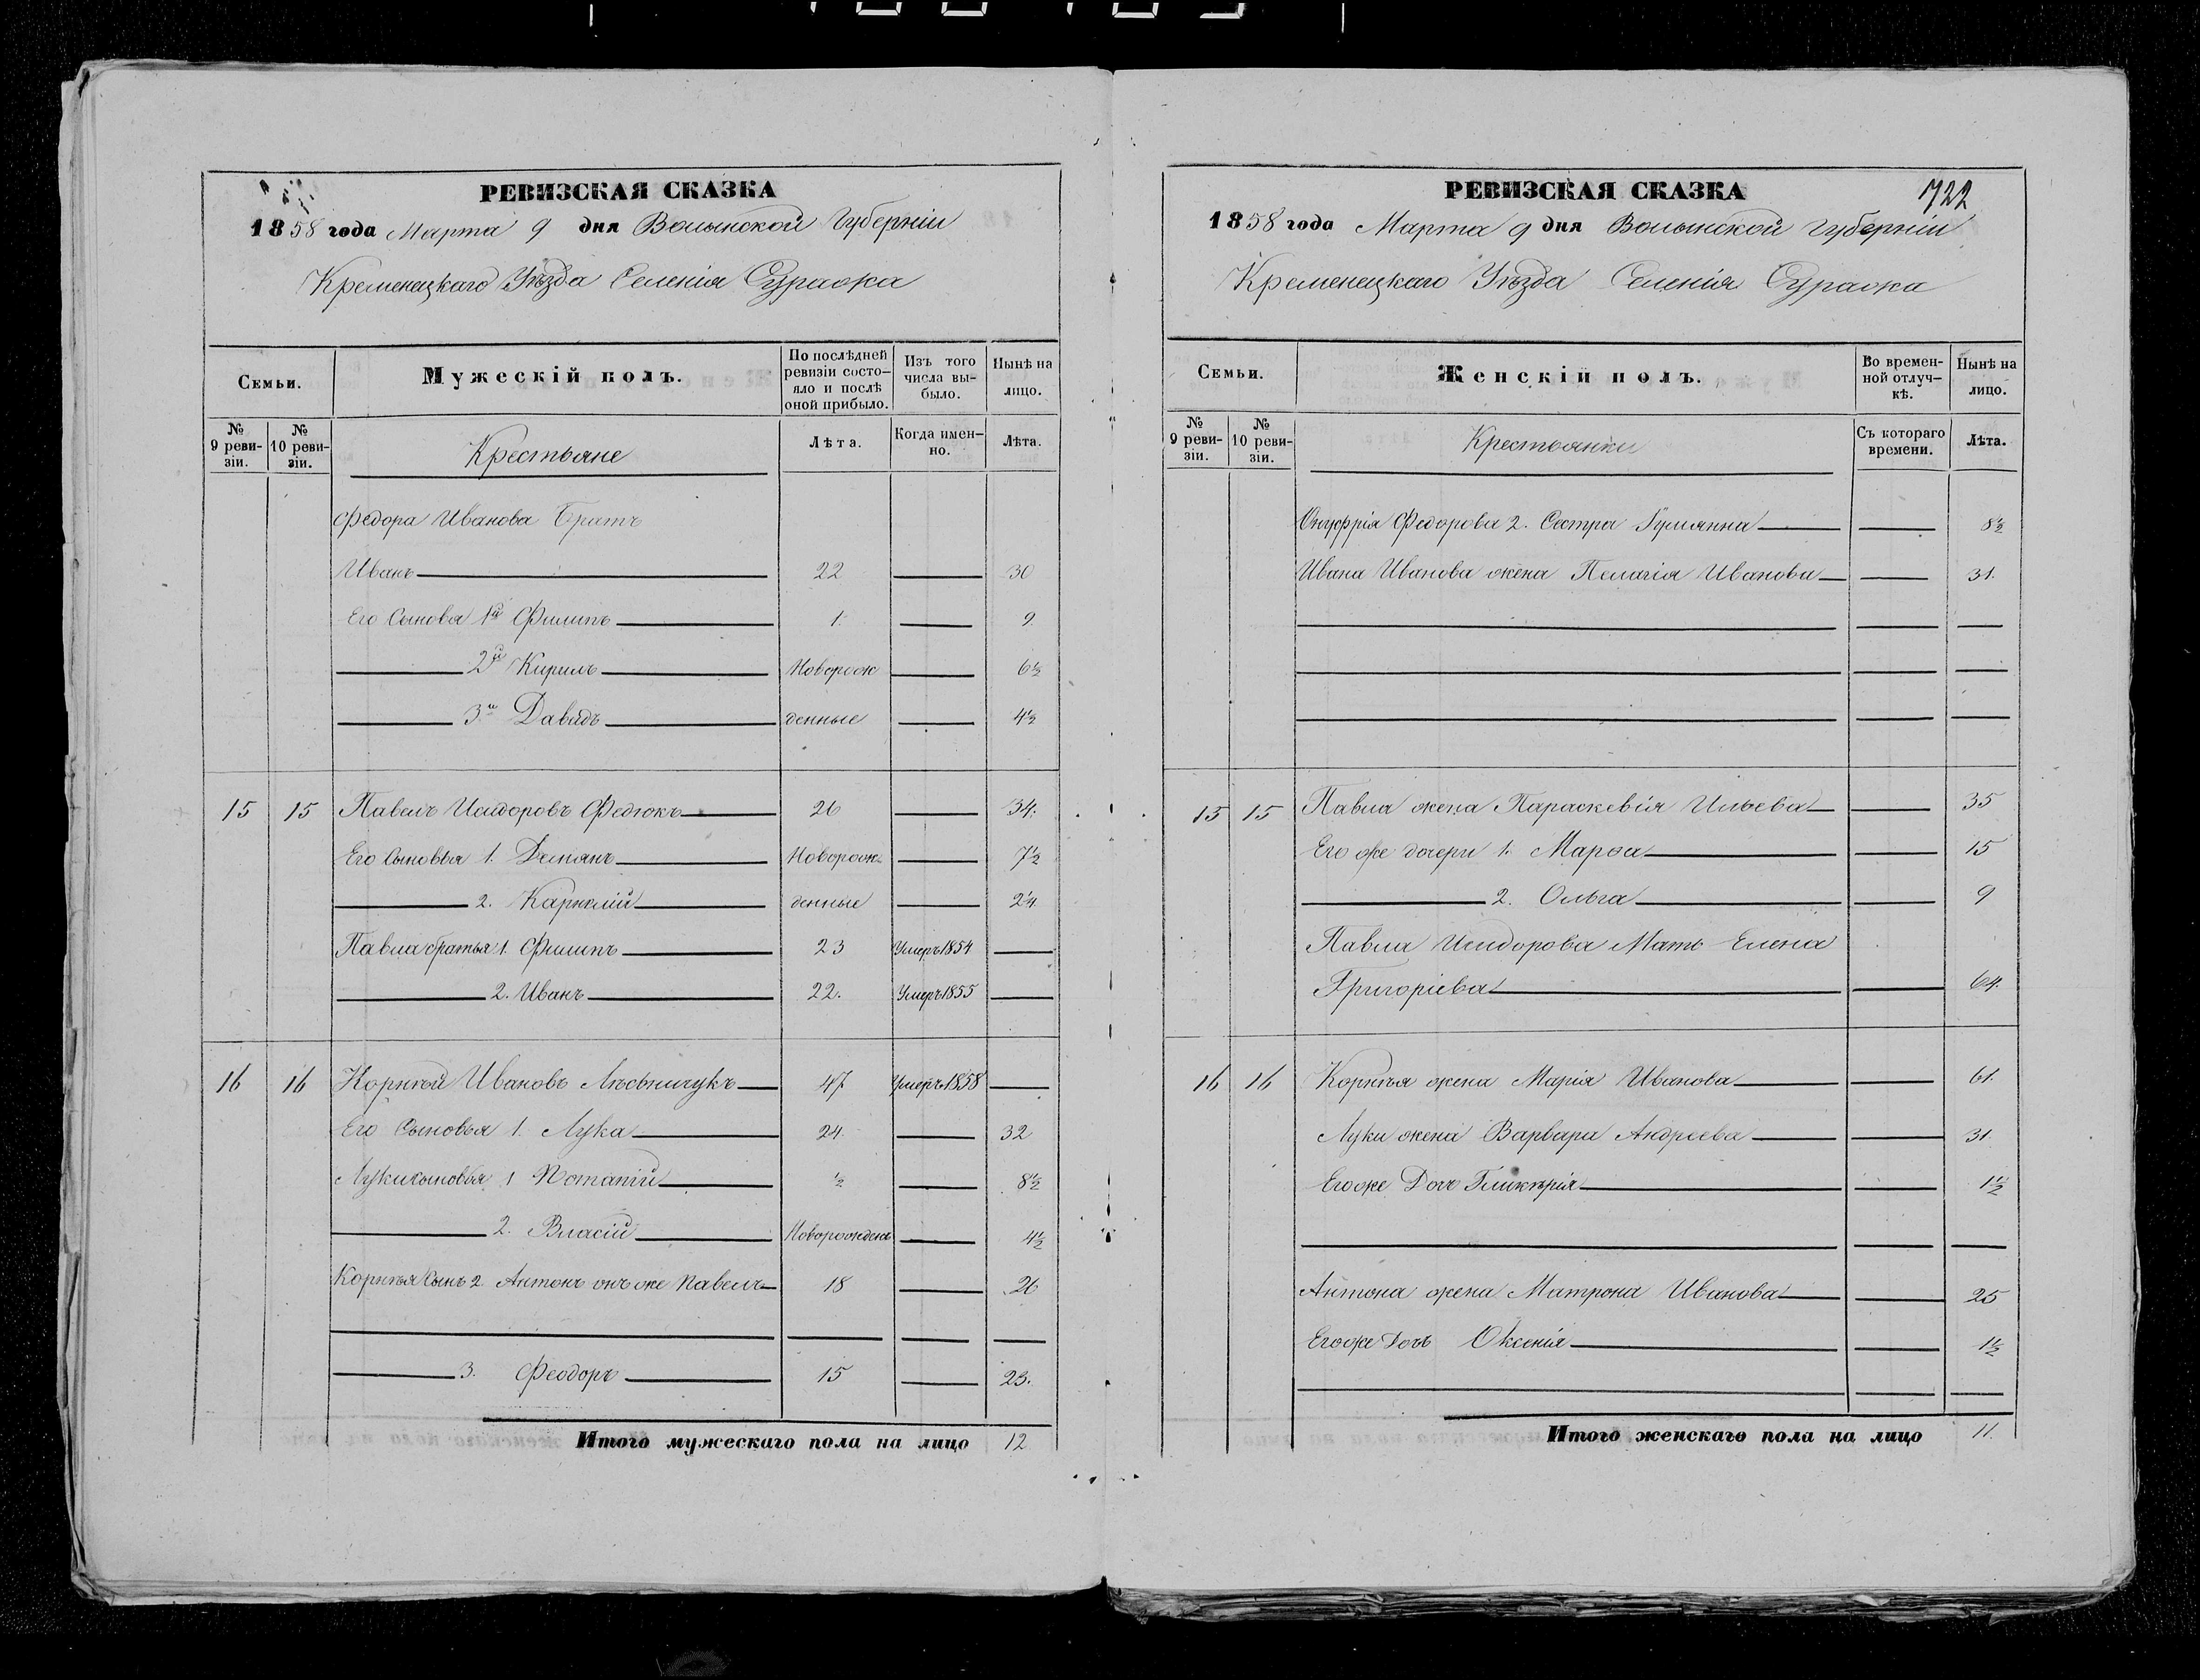 РЕВИЗСКАЯ СКАЗКА
1858 года Марта 9 дня Волынской Губерніи
Кременецкаго Уѣзда Селенія Суража
Семьи.
Мужескій полъ.
По послѣдней ревизіи состо-яло и послѣ оной прибыло.
Изъ того числа вы-было.
Нынѣ на лицо.
№ 9 реви-зіи.
№ 10 реви-зіи.
Крестьяне
Лѣта.
Когда имен-но.
Лѣта.
Федора Иванова Братъ
Иванъ 22 30
Его Сыновья 1й Филипъ 1 9
2й Кирилъ Новорож 6½
3й Давидъ денные 4½
15 15 Павелъ Исидоровъ Федюкъ 26 34
Его Сыновья 1. Демянъ Новорож 7½
2. денные 2¼
Павла братья 1. Филипъ 23 Умеръ 1854
2. Иванъ 22. Умеръ 1855
16 16 Корнѣй Ивановъ 47 Умеръ 1858
Его Сыновья 1. Лука 24 32
Луки сыновья 1 Потапій ½ 8½
2. Власій Новорожден 4½
Корнѣя Сынъ 2 Антонъ онъ же Павелъ 18 26
3. Феодоръ 15 23.
Итого мужескаго пола на лицо 12
РЕВИЗСКАЯ СКАЗКА
722
1858 года Марта 9 дня Волынской Губерніи
Кременецкаго Уѣзда Селенія Суража
Семьи.
Женскій полъ.
Во времен-ной отлуч-кѣ.
Нынѣ на лицо.
№ 9 реви-зіи.
№ 10 реви-зіи.
Крестьянки
Съ котораго времени.
Лѣта.
Онуфрія Федорова 2. Сестра 8½
Ивана Иванова жена Пелагія Иванова 31.
15 15 Павла жена Параскевія Ильева 35
Его же дочери 1. Марѳа 15
2. Ольга 9
Павла Исидорова Мать Елена
Григоріева 64.
16 16 Корнѣя жена Марія Иванова 61.
Луки жена Варвара Андреева 31.
Его же Дочь Гликѣрія 1½
Антона жена Матрона Иванова 25
Его же Дочь Оксенія 1½
Итого женскаго пола на лицо 11.